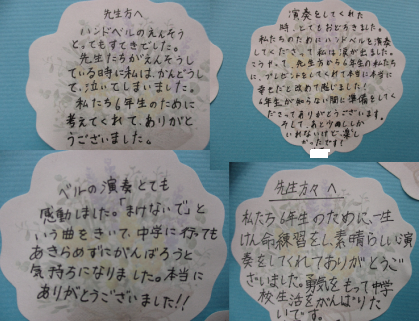 先生方へ
ハンドベルのえんそう
とってもすてきでした。
先生たちがえんそうし
ている時に私は、かんどうし
て、泣いてしまいました。
私たち6年生のために
考えてくれて、ありがと
うございました。
演奏をしてくれた
時、とてもおどろきました。
私たちのためにハンドベルを演奏
してくださって私は涙が出ました。
こうやって、先生方から6年生の私たち
に、プレゼントをしてくれて本当に本当に
幸せだと改めて感じました！
6年生が知らない間に準備をしてく
ださってありがとうございます。
そして、あと少ししか
いれないけど楽し
かったです！
ベルの演奏とても
感動しました。「まけないで」と
いう曲をきいて、中学に行っても
あきらめずにがんばろうと
気持ちになりました。本当に
ありがとうございました!!
先生方々へ
私たち6年生のために、一生
けん命練習をし、素晴らしい演
奏をしてくれてありがとうご
ざいました。勇気をもって中学
校生活をがんばりた
いです。